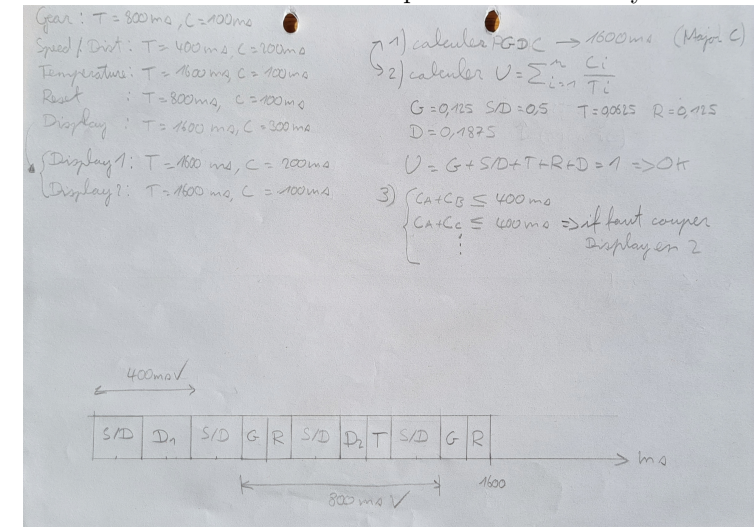 Gear : T = 800ms, C = 100ms
Speed / Dist : T = 400ms, C = 200ms
Temperature : T = 1600ms, C = 100ms
Reset : T = 800ms, C = 100ms
Display : T = 1600ms, C = 300ms
Display 1 : T = 1600 ms, C = 200ms
Display 2 : T = 1600ms, C = 100ms
1) calculer PGDC → 1600ms (Major C)
2) calculer U = ∑ i=1 n Ci / Ti
G = 0,125 S/D = 0,5 T = 0,0625 R = 0,125
D = 0,1875
U = G + S/D + T + R + D = 1 => OK
3) CA + CB ≤ 400ms
CA + CC ≤ 400ms => il faut couper
⋮ Display en 2
400ms √
S/D D1 S/D G R S/D D2 T S/D G R
ms
800ms √
1600